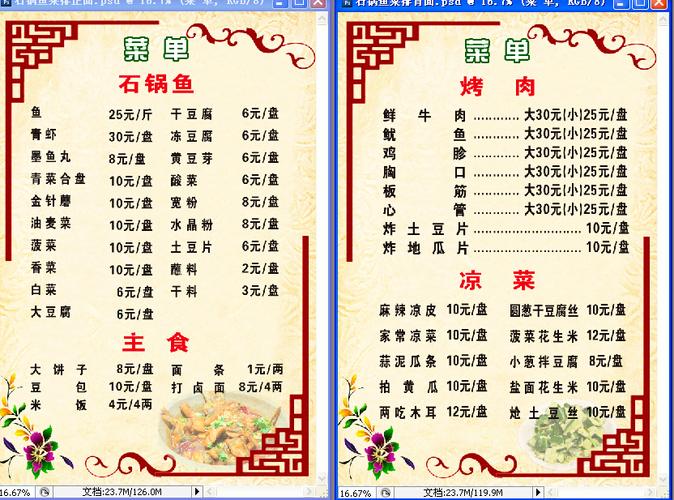 石锅鱼菜排正面.psd @ 16.7% (菜 单, RGB/8)
菜 单
石锅鱼
鱼 25元/斤 干豆腐 6元/盘
青虾 30元/盘 冻豆腐 6元/盘
墨鱼丸 8元/盘 黄豆芽 6元/盘
青菜合盘 10元/盘 酸菜 6元/盘
金针蘑 10元/盘 宽粉 8元/盘
油麦菜 10元/盘 水晶粉 8元/盘
菠菜 10元/盘 土豆片 6元/盘
香菜 10元/盘 蘸料 2元/盘
白菜 6元/盘 干料 3元/盘
大豆腐 6元/盘
主 食
大饼子 8元/盘 面条 1元/两
豆包 10元/盘 打卤面 8元/4两
米饭 4元/4两
16.67% 文档:23.7M/126.0M
石锅鱼菜排背面.psd @ 16.7% (菜 单, RGB/8)
菜 单
烤 肉
鲜牛肉............大30元(小)25元/盘
鱿鱼............大30元(小)25元/盘
鸡胗............大30元(小)25元/盘
胸口............大30元(小)25元/盘
板筋............大30元(小)25元/盘
心管............大30元(小)25元/盘
炸土豆片............................10元/盘
炸地瓜片............................10元/盘
凉 菜
麻辣凉皮 10元/盘 圆葱干豆腐丝 10元/盘
家常凉菜 10元/盘 菠菜花生米 12元/盘
蒜泥瓜条 10元/盘 小葱拌豆腐 8元/盘
拍黄瓜 10元/盘 盐面花生米 10元/盘
两吃木耳 12元/盘 炝土豆丝 10元/盘
16.67% 文档:23.7M/119.9M